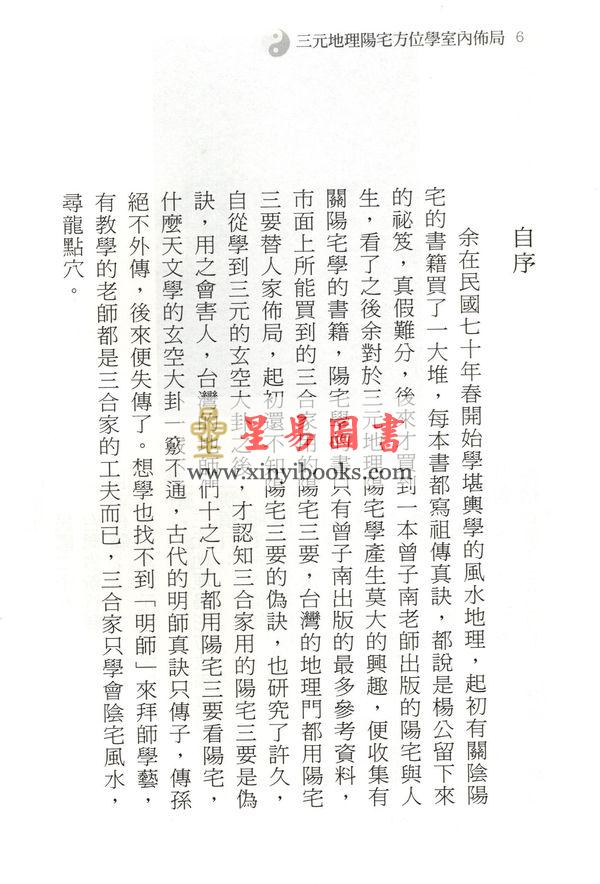 三元地理陽宅方位學室內佈局 6
自序
余在民國七十年春開始學堪輿學的風水地理，起初有關陰陽
宅的書籍買了一大堆，每本書都寫祖傳真訣，都說是楊公留下來
的祕笈，真假難分，後來才買到一本曾子南老師出版的陽宅與人
生，看了之後余對於三元地理陽宅學產生莫大的興趣，便收集有
關陽宅學的書籍，陽宅學叢書只有曾子南出版的最多參考資料，
市面上所能買到的三合家用的陽宅三要，台灣的地理門都用陽宅
三要替人家佈局，起初還不知陽宅三要的偽訣，也研究了許久，
自從學到三元的玄空大卦之後，才認知三合家用的陽宅三要是偽
訣，用之會害人，台灣地師們十之八九都用陽宅三要看陽宅，
什麼天文學的玄空大卦一竅不通，古代的明師真訣只傳子，傳孫
絕不外傳，後來便失傳了。想學也找不到「明師」來拜師學藝，
有教學的老師都是三合家的工夫而已，三合家只學會陰宅風水，
尋龍點穴。
星易圖書
www.xinyibooks.com